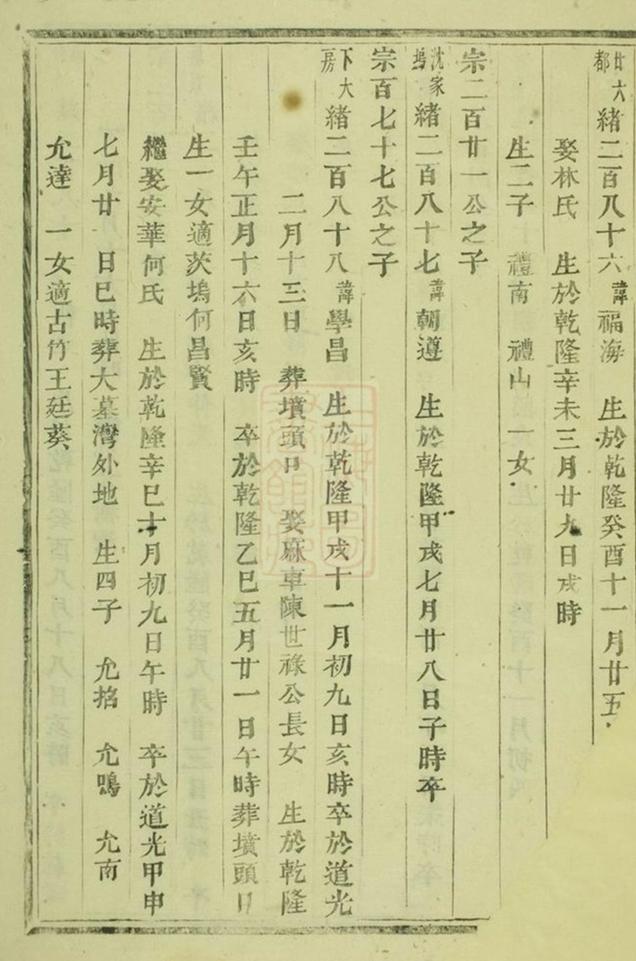 廿六都 緒二百八十六 諱福海 生於乾隆癸酉十一月廿五
娶林氏 生於乾隆辛未三月廿九日戌時
生二子 禮南 禮山 一女
宗二百廿一公之子
沈家塢 緒二百八十七 諱朝遵 生於乾隆甲戌七月廿八日子時卒
宗百七十七公之子
下大房 緒二百八十八 諱學昌 生於乾隆甲戌十一月初九日亥時卒於道光
二月十三日 葬墳頭 娶麻車陳世祿公長女 生於乾隆
壬午正月十六日亥時 卒於乾隆乙巳五月廿一日午時葬墳頭
生一女適茨塢何昌賢
繼娶安華何氏 生於乾隆辛巳十月初九日午時 卒於道光甲申
七月廿日巳時葬大墓灣外地 生四子 允掐 允鳴 允南
允達 一女適古竹王廷葵